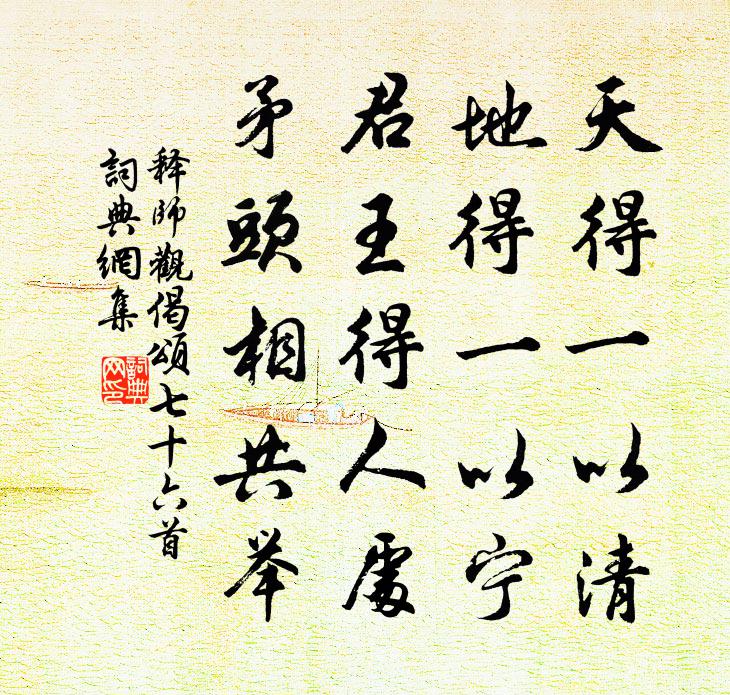 天得一以清
地得一以宁
君王得人處
矛頭相共举
释師觀偈頌七十六首
詞典網集
詞典
网印